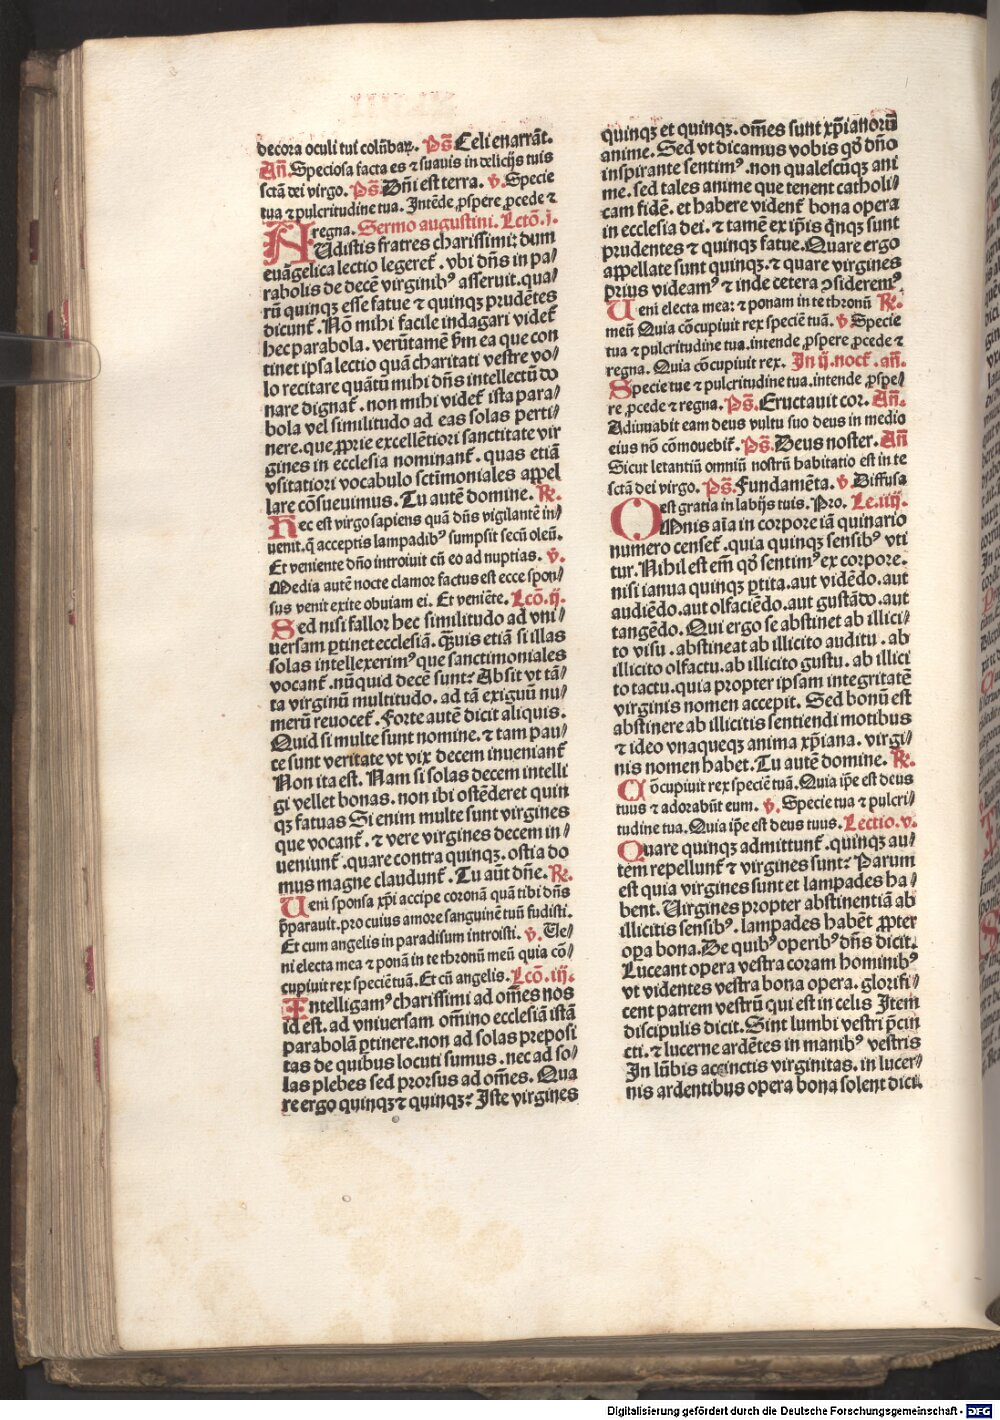 decora oculi tui colūbaꝝ. Ps̄. Celi enarrāt.
Añ. Speciosa facta es ⁊ suauis in delicijs tuis
sctā dei virgo. Ps̄. Dñi est terra. v̄. Specie
tua ⁊ pulcritudine tua. Intēde ꝓspere ꝓcede ⁊
regna. Sermo augustini. Lctō. j.
AUdistis fratres charissimi: dum
euāgelica lectio legeret᷑. vbi dñs in pa/
rabolis de decē virginibꝰ asseruit. qua/
rū quinqꝫ esse fatue ⁊ quinqꝫ prudētes
dicunt᷑. Nō mihi facile indagari videt᷑
hec parabola. verūtamē ẜm ea que con
tinet ipsa lectio quā charitati vestre vo/
lo recitare quātū mihi dñs intellectū do
nare dignat᷑. non mihi videt᷑ ista para/
bola vel similitudo ad eas solas perti/
nere. que ꝓprie excellētiori sanctitate vir
gines in ecclesia nominant᷑. quas etiā
vsitatiori vocabulo sctimoniales appel
lare cōsueuimus. Tu autē domine. R̄.
Hec est virgo sapiens quā dñs vigilantē in/
uenit. q̄ acceptis lampadibꝰ sumpsit secū oleū.
Et veniente dño introiuit cū eo ad nuptias. v̄.
Media autē nocte clamor factus est ecce spon/
sus venit exite obuiam ei. Et veniēte. Lcō. ij.
Sed nisi fallor hec similitudo ad vni/
uersam ꝑtinet ecclesiā. Quis etiā si illas
solas intellexerimꝰ que sanctimoniales
vocant᷑. nūquid decē sunt? Absit vt tā/
ta virginū multitudo. ad tā exiguū nu/
merū reuocet᷑. Forte autē dicit aliquis.
Quid si multe sunt nomine. ⁊ tam pau/
te sunt veritate vt vix decem inueniant᷑
Non ita est. Nam si solas decem intelli
gi vellet bonas. non ibi ostēderet quin
qꝫ fatuas Si enim multe sunt virgines
que vocant᷑. ⁊ vere virgines decem in/
ueniunt᷑. quare contra quinqꝫ. ostia do
mus magne claudunt᷑. Tu aūt dñe. R̄.
Ueni sponsa xp̄i accipe coronā quā tibi dñs
p̄parauit. pro cuius amore sanguinē tuū fudisti.
Et cum angelis in paradisum introisti. v̄. Ue/
ni electa mea ⁊ ponā in te thronū meū quia cō/
cupiuit rex speciē tuā. Et cū angelis. Lcō. iij.
Intelligamꝰ charissimi ad om̄es nos
id est. ad vniuersam om̄ino ecclesiā istā
parabolā ꝑtinere. non ad solas preposi
tas de quibus locuti sumus. nec ad so/
las plebes sed prorsus ad om̄es. Qua
re ergo quinqꝫ ⁊ quinqꝫ? Iste virgines
quinqꝫ et quinqꝫ. om̄es sunt xp̄ianorū
anime. Sed vt dicamus vobis qđ dño
inspirante sentimꝰ. non qualescūqꝫ ani
me. sed tales anime que tenent catholi/
cam fidē. et habere vident᷑ bona opera
in ecclesia dei. ⁊ tamē ex ip̄is q̄nqꝫ sunt
prudentes ⁊ quinqꝫ fatue. Quare ergo
appellate sunt quinqꝫ. ⁊ quare virgines
prius videamꝰ ⁊ inde cetera ꝯsideremꝰ
Ueni electa mea: ⁊ ponam in te thronū R̄.
meū Quia cōcupiuit rex speciē tuā. v̄ Specie
tua ⁊ pulcritudine tua. intende ꝓspere ꝓcede ⁊
regna. Quia cōcupiuit rex. In ij. noct᷑. añ.
Specie tue ⁊ pulcritudine tua. intende ꝓspe/
re ꝓcede ⁊ regna. Ps̄. Eructauit cor. Añ.
Adiuuabit eam deus vultu suo deus in medio
eius nō cōmouebit᷑. Ps̄. Deus noster. Añ
Sicut letantiū omniū nostrū habitatio est in te
sctā dei virgo. Ps̄. Fundamēta. v̄. Diffusa
est gratia in labijs tuis. Pro. Le. iiij.
OMnis aīa in corpore iā quinario
numero censet᷑. quia quinqꝫ sensibꝰ vti
tur. Nihil est em̄ qđ sentimꝰ ex corpore.
nisi ianua quinqꝫ ꝑtita. aut vidēdo. aut
audiēdo. aut olfaciēdo. aut gustādo. aut
tangēdo. Qui ergo se abstinet ab illici/
to visu. abstineat ab illicito auditu. ab
illicito olfactu. ab illicito gustu. ab illici
to tactu. quia propter ipsam integritatē
virginis nomen accepit. Sed bonū est
abstinere ab illicitis sentiendi motibus
⁊ ideo vnaqueqꝫ anima xp̄iana. virgi/
nis nomen habet. Tu autē domine. R̄.
Cōcupiuit rex speciē tuā. Quia ip̄e est deus
tuus ⁊ adorabūt eum. v̄. Specie tua ⁊ pulcri/
tudine tua. Quia ip̄e est deus tuus. Lectio. v.
Quare quinqꝫ admittunt᷑. quinqꝫ au/
tem repellunt᷑ ⁊ virgines sunt? Parum
est quia virgines sunt et lampades ha/
bent. Uirgines propter abstinentiā ab
illicitis sensibꝰ. lampades habēt ꝓpter
oꝑa bona. De quibꝰ operibꝰ dñs dicit.
Luceant opera vestra coram hominibꝰ
vt videntes vestra bona opera. glorifi/
cent patrem vestrū qui est in celis Item
discipulis dicit. Sint lumbi vestri p̄cin
cti. ⁊ lucerne ardētes in manibꝰ vestris
In lūbis accinctis virginitas. in lucer/
nis ardentibus opera bona solent dici.
Digitalisierung gefördert durch die Deutsche Forschungsgemeinschaft - DFG